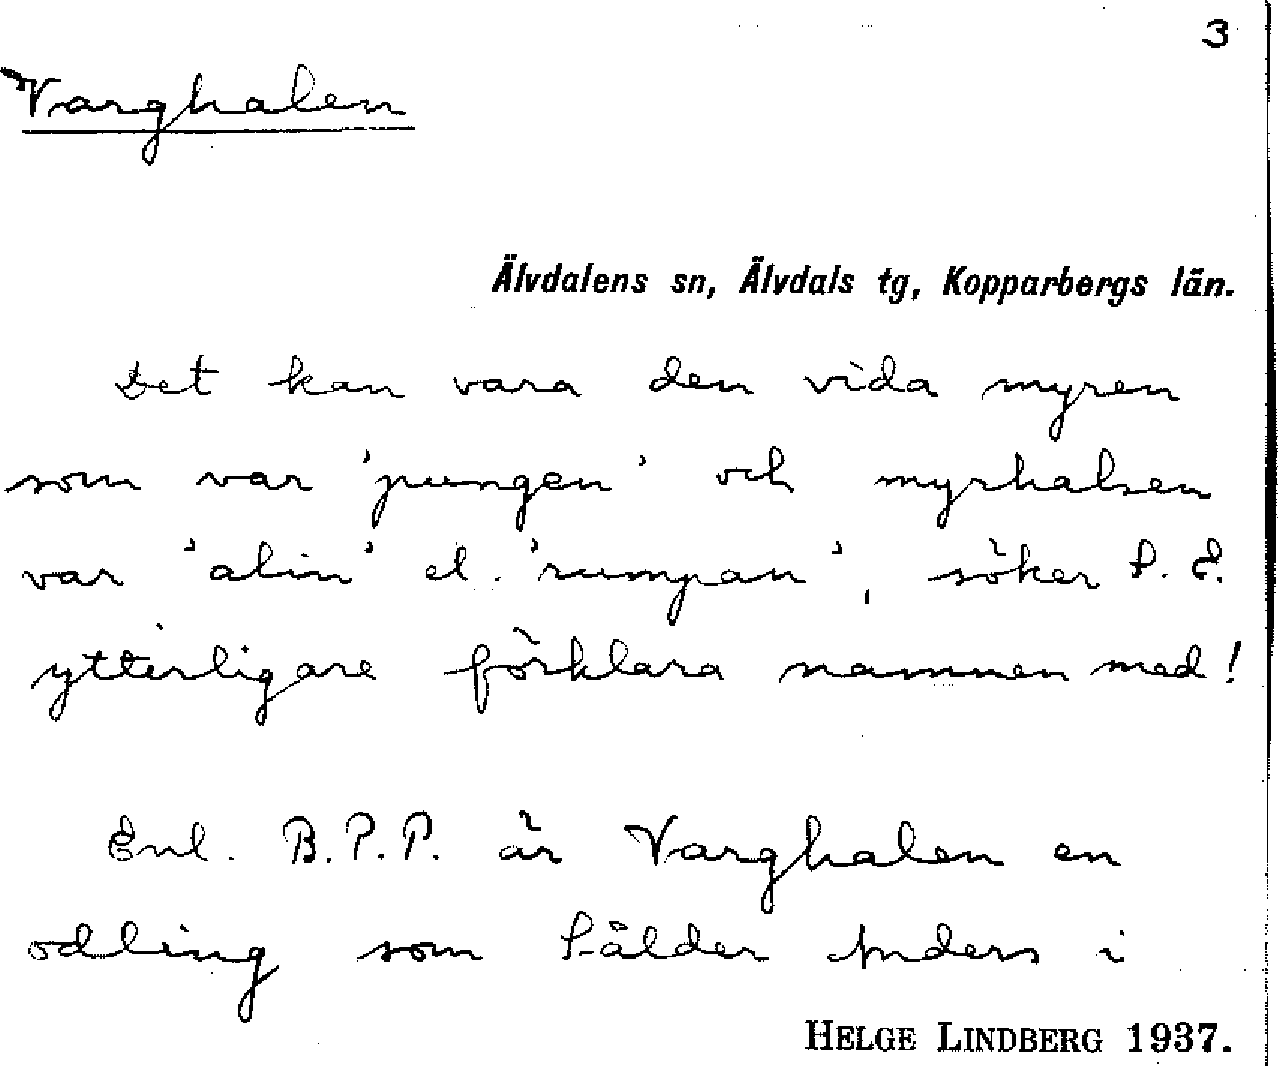 3
Varghalen
Älvdalens sn, Älvdals tg, Kopparbergs län.
Det kan vara den vida myren
som var 'pungen' och myrhalsen
var 'alin' el. 'rumpan', söker
ytterligare förklara namnen med!
Enl. B.P.P. är Varghalen en
odling som Anders i
HELGE LINDBERG 1937.